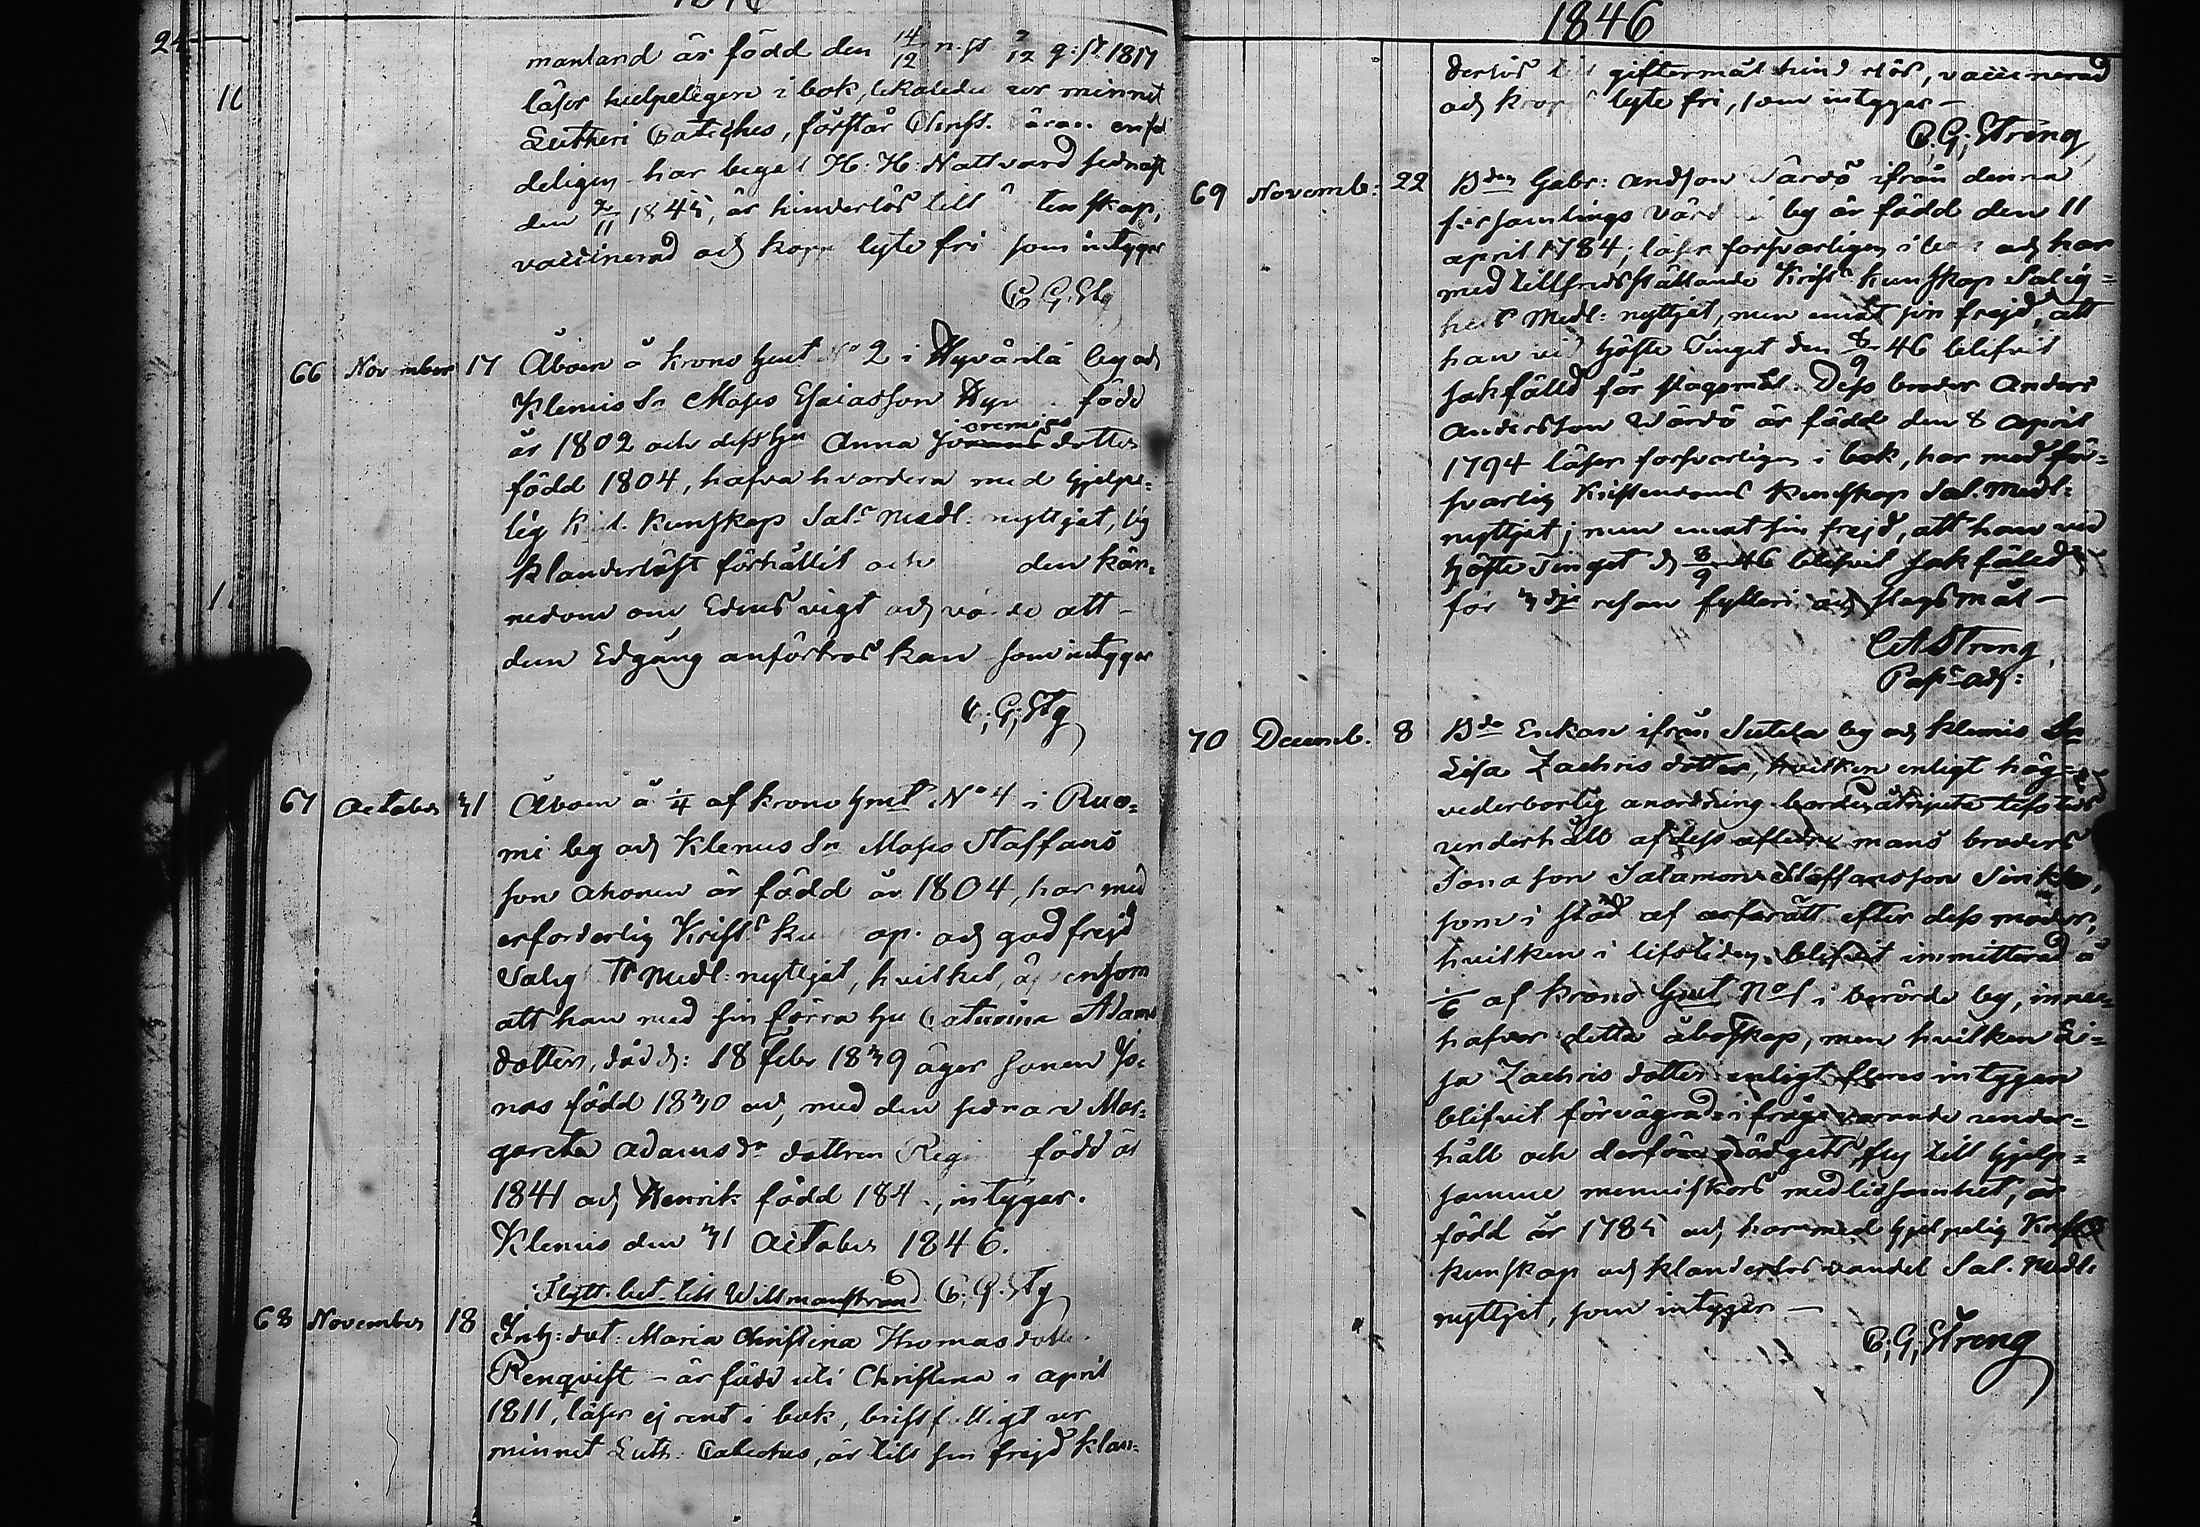 24
manland är född den 14/12 n. st. 2/12 g: st. 1817
läser hjelpeligen i bok, likaledes ur minnet
Lutheri Cateches, förstår Christ. läran
deligen har begått H. H. Nattvard sednast
den 2/11 1845, är hinderlös till
vaccinerad och lyte fri som intygar
C. G. Stg
66 November 17 Åboen å krono hmt No 2 i Hyvärilä by och
Klemis Sn Moses Esaiasson född
år 1802 och dess hu Anna dotter
född 1804, hafva hvardera med hjelpe-
lig kunskap Sal:s medl: nyttjat, sig
klanderlöst förhållit och den kän-
nedom om Edens vigt och värde att
dem Edgång anförtros kan som intygar
C; G; Stg
67 October 31 Åboen å 1/4 af krono hmt No 4 i Ruo-
mi by och Klemis Sn Moses Staffans
son Ahonen är född år 1804, har med
erforderlig Krist:s och god frejd
Salig Medl: nyttjat, hvilket, äfvensom
att han med sin förra hu Catarina Adams
dotter, död d: 18 febr 1839 äger sonen Jo-
nas född 1830 och med den sednare Mar-
gareta Adams dr dottren född år
1841 och Henrik född 184 , intygar.
Klemis den 31 October 1846.
Flytt. bet. till Willmanstrand C; G. Stg
68 November 18 Inh: dot: Maria Christina Thomas dotter
Renqvist – är född uti Christina i april
1811, läser ej rent i bok, bristfälligt ur
minnet Luth: Catectus, är till sin frejd klan-
1846
derlös till giftermål hinderlös, vaccinerad
och kropps lyte fri, som intygar –
C; G; Streng
69 Novemb: 22 Bden Gabr: Andsson Värdö ifrån denna
församlings by är född den 11
april 1784; läser försvarligen i bok och har
med tillfredsställande Krist:s kunskap Salig-
hets Medl: nyttjat, men emot sin frejd, att
han vid Höste Tinget den 8/9 46 blifvit
sakfälld för slagsmål. Dess broder Anders
Andersson Wärdö är född den 8 April
1794 läser försvarligen i bok, har med för-
svarlig Kristendoms kunskap Sal. Medl:
nyttjat; men emot sin frejd, att han vid
Höste Tinget d 8/9 46 blifvit sakfälld
för 3dje resan fylleri och slagsmål –
C A Streng
Past adj:
70 Decemb. 8 Bde Enkan ifrån Sutela by och Klemis Sn
Lisa Zachris dotter, hvilken enligt hög-
vederbörlig anordning borde åtnjuta lifstids
underhåll af dess aflidne mans broders
Jona son Salamon Staffansson Sinkko,
som i stöd af arfsrätt efter dess moder,
hvilken i lifstiden blifvit immitterad å
1/6 af Krono Hmt No 1 i berörde by, inne-
hafver detta åboskap, men hvilken Li-
sa Zachris dotter enligt flera intygen
blifvit förvägrad i fråga varande under-
håll och derföre nödgats fly till hjelp-
samme menniskors medlidsamhet, är
född år 1785 och har med hjelpelig Krist:s
kunskap och klanderlös vandel Sal. Medl.
nyttjat, som intygar –
C; G; Streng